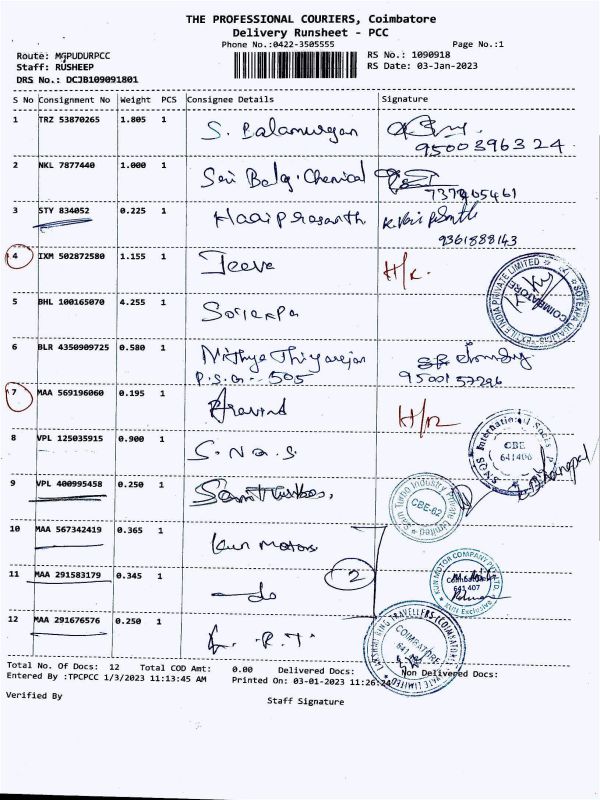 THE PROFESSIONAL COURIERS, Coimbatore
Delivery Runsheet - PCC
Phone No.:0422-3505555 Page No.:1
Route: MGPUDURPCC RS No.: 1090918
Staff: RUSHEEP RS Date: 03-Jan-2023
DRS No.: DCJB109091801
S No Consignment No Weight PCS Consignee Details Signature
1 TRZ 53870265 1.805 1 S. Balamurgan
9500396324.
2 NKL 7877440 1.000 1 Sri Balaji Chemical
3 STY 834052 0.225 1 Haariprasanth
9361888143
4 IXM 502872580 1.155 1 Jeeva H/R.
5 BHL 100165070 4.255 1
COIMBATORE
6 BLR 4350909725 0.580 1 Nithya Thiyarajan
P.S.G - 505 9500157296
7 MAA 569196060 0.195 1 Aravind H/R
8 VPL 125035915 0.900 1 S.N.Q.S
SNQS International Socks
CBE
641406
9 VPL 400995458 0.250 1
CBE-62
10 MAA 567342419 0.365 1 Kun Motors
11 MAA 291583179 0.345 1 do 2
KUN MOTOR COMPANY PVT LTD
Coimbatore
641 407
KUN Exclusive
12 MAA 291676576 0.250 1 L. R.T.
TRAVELLERS (COIMBATORE)
COIMBATORE
Total No. Of Docs: 12 Total COD Amt: 0.00 Delivered Docs: Non Delivered Docs:
Entered By :TPCPCC 1/3/2023 11:13:45 AM Printed On: 03-01-2023 11:26:24
Verified By Staff Signature